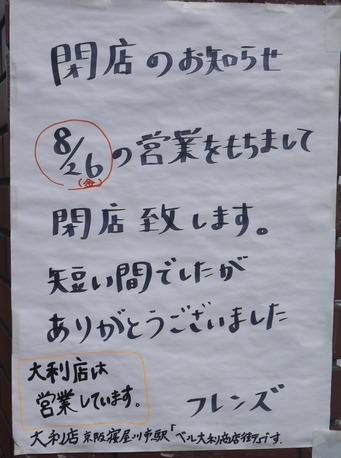 閉店のお知らせ
8/26(毎)の営業をもちまして
閉店致します。
短い間でしたが
ありがとうございました
大利店は
営業しています。
フレンズ
大利店 京阪寝屋川市駅「ベル大利商店街」です.